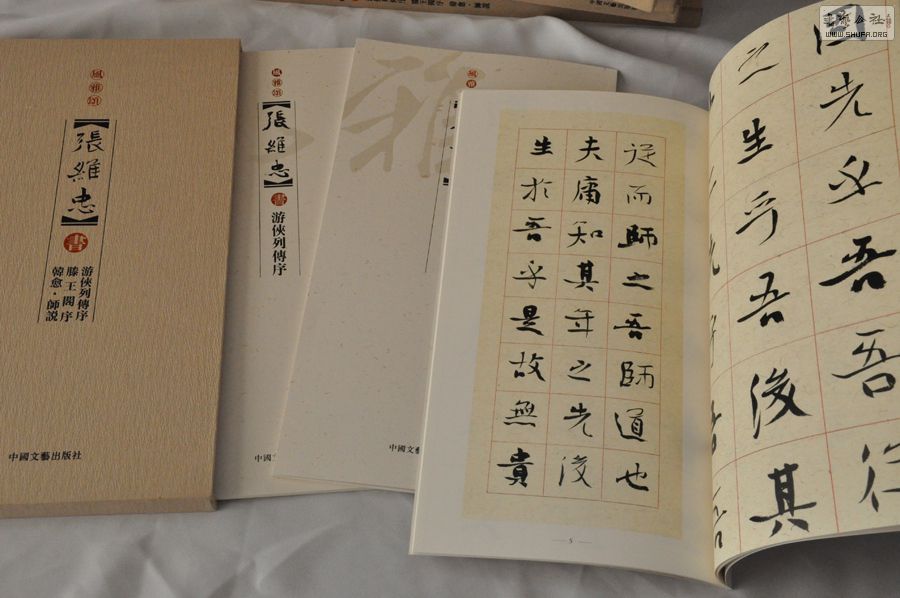 書法公社
WWW.SHUFA.ORG
風雅頌
【張維忠】
書
游俠列傳序
滕王閣序
韓愈·師說
中國文藝出版社
風雅頌
【張維忠】
書
游俠列傳序
雅
風雅
固先乎吾吾從
之生乎吾後其
從而師之吾師道也
夫庸知其年之先後
生於吾乎是故無貴
5